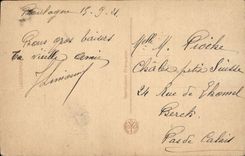 Boulogne 15.9.21
Bons gros baisers
Ta vieille amie
Mlle M. Pioche
Châlet petit Suisse
24 Rue de Lhomel
Berck
Pas de Calais